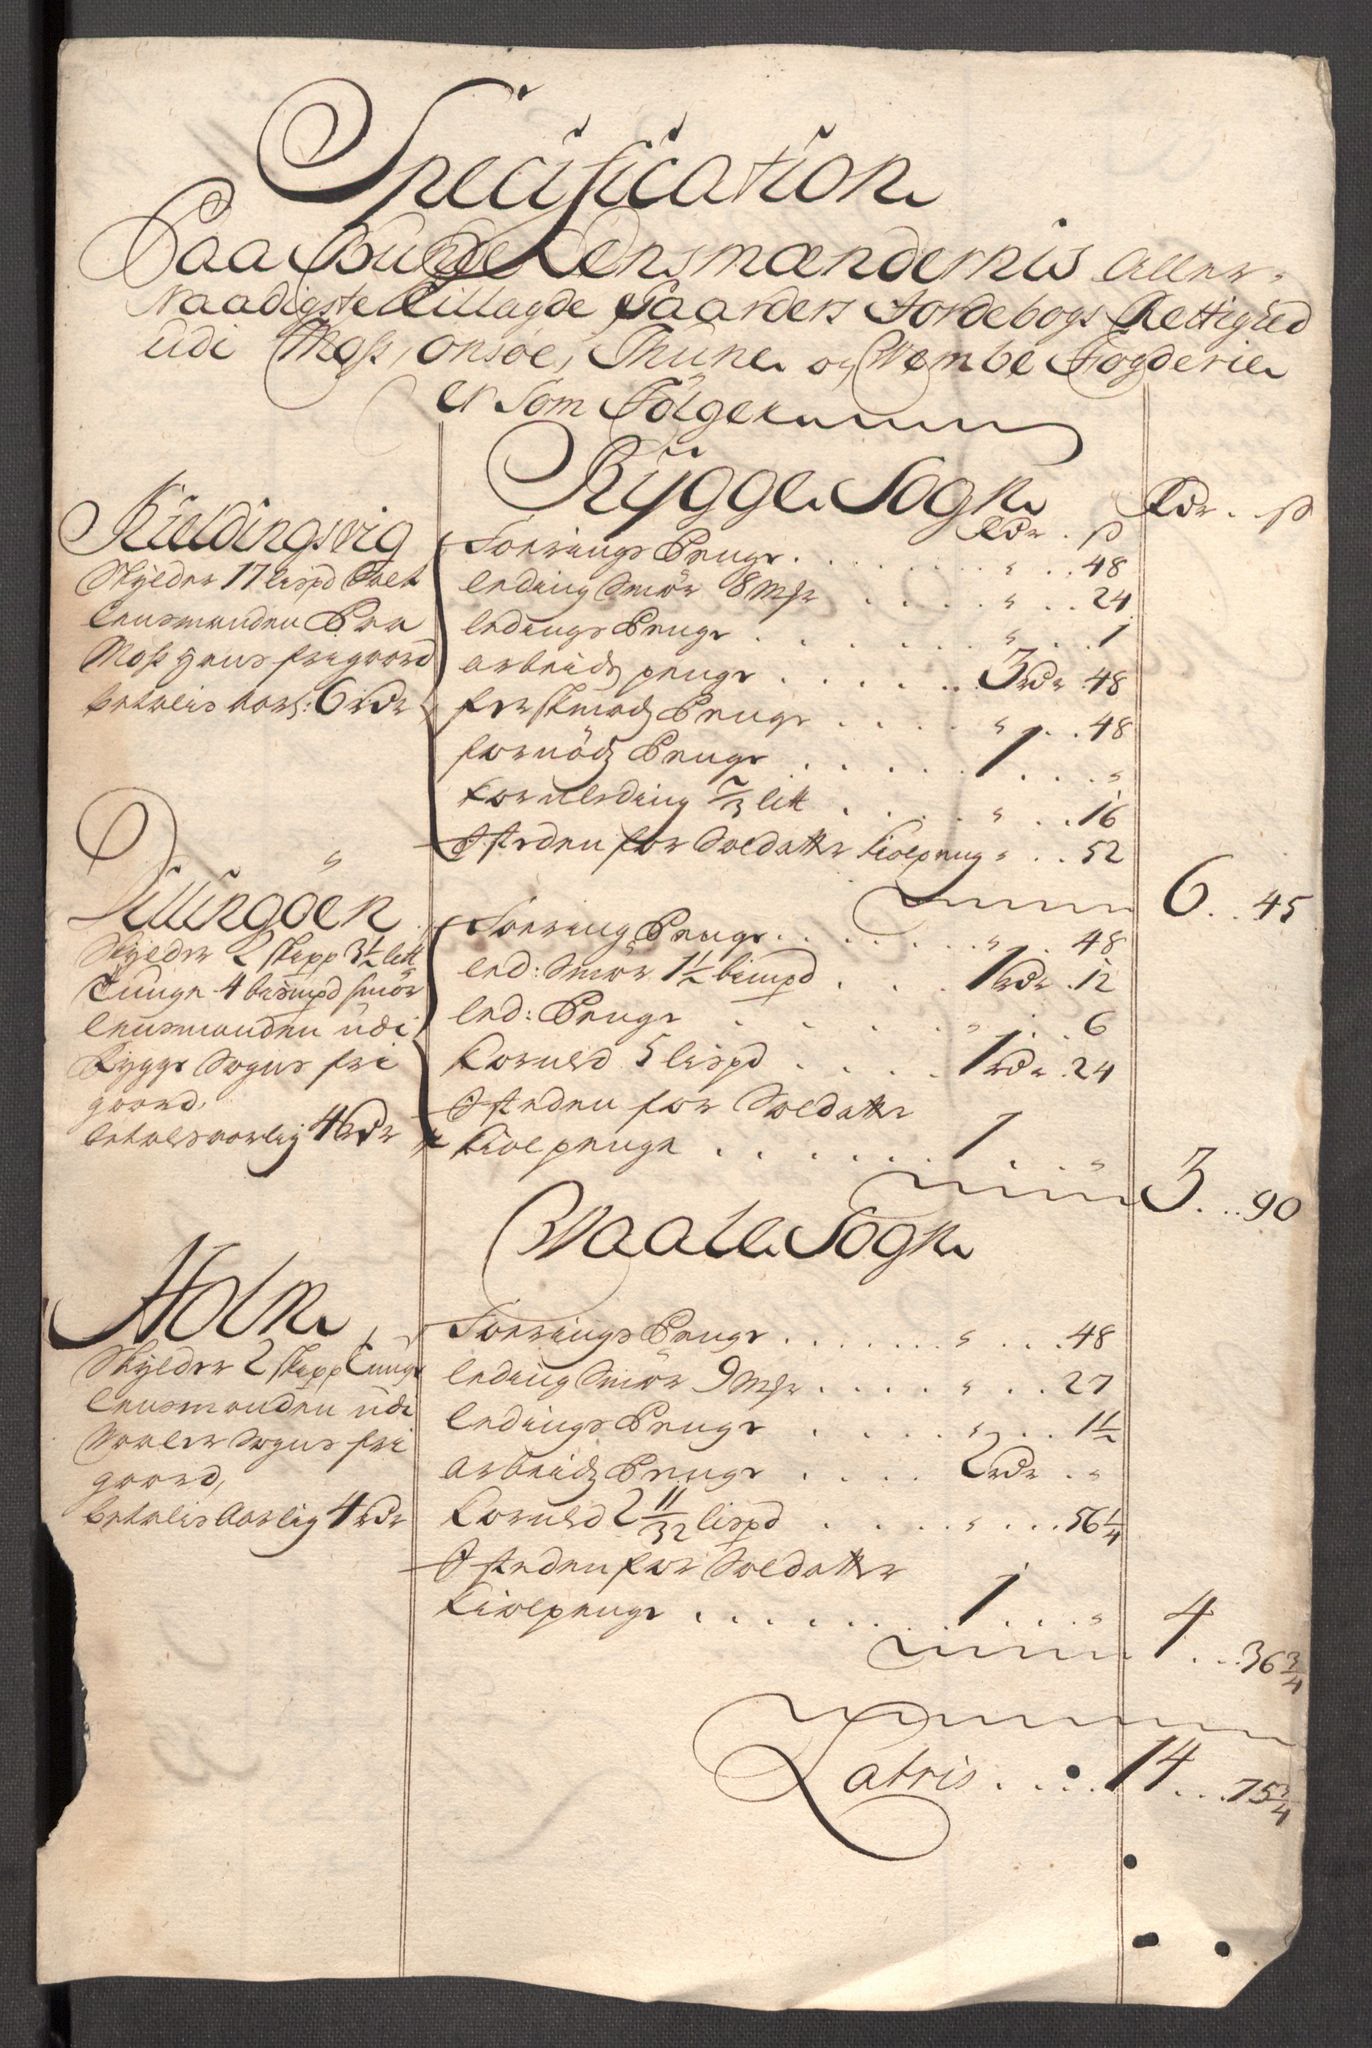 Specification
Paa Bunde Lensmændernis aller-
Naadigste tillagde Gaarders Jordebogs Rettighed
udi Moss, Onsøe, Thune og Wembe Fogderie
er Som Følger
Rÿgge Sogn
Rdr. ß
Rdr. ß
Kieldingsvig
Skylder 17 Lispd Salt
Lensmanden Paa
Moss hans frigaord
betalis aarl: 6 rdr
Foerings Penge . . . " . . 48
Leding Smör 8 Mkr . . . " . . 24
Ledings Penge . . . " . . 1
Arbeids penge . . . 3 rdr 48
Penge . . . " . . 48
fornöds Penge . . . 1 . . "
Kornleding 2/3 lett . . . " . . 16
I steden for Soldatter Kiolpeng " . . 52
6 . . 45
Dillingöen
Skylder 2 skipp 3½ lett
Tunge 4 bismpd smör
Lensmanden udi
Rygge Sogns fri
gaard,
betales aarlig 4 rdr
Foering Penge . . . " . . 48
Led: Smör 1½ bismpd . . . 1 rdr 12
Led: Penge . . . " . . 6
Kornled 5 lispd . . . 1 rdr 24
I steden for Soldatter
Kiolpenge . . . 1 . . "
3 . . 90
Waaler Sogn
Holm
Skylder 2 skipp Tunge
Lensmanden udi
Waaler Sogns fri
gaard,
betalis Aarlig 4 rdr
Foerings Penge . . . " . . 48
Leding Smör 9 Mkr . . . " . . 27
Ledings Penge . . . " . . 1½
Arbeids Penge . . . 2 rdr . "
Kornled 2 11/32 lispd . . . " . . 56¼
I steden for Soldatter
Kiolpenge . . . 1 . . "
4 . . 36¾
Latris . . . 14 . . 75¾